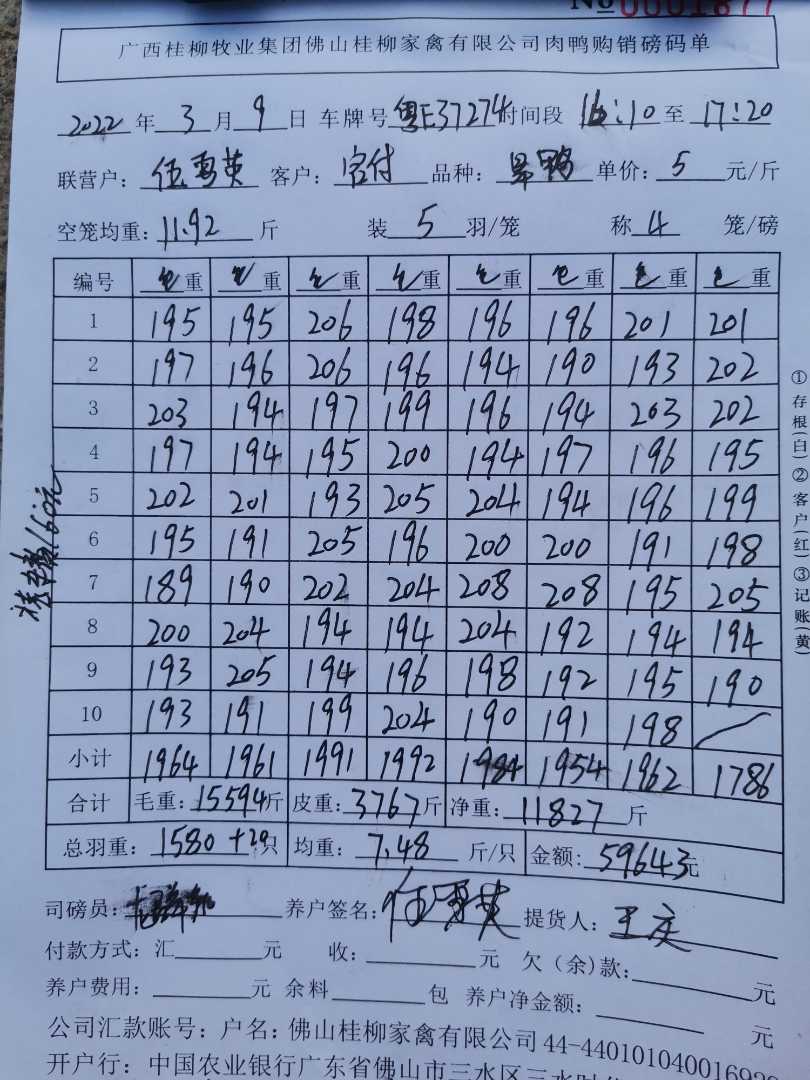 No 0001877
广西桂柳牧业集团佛山桂柳家禽有限公司肉鸭购销磅码单
2022 年 3 月 9 日 车牌号 粤E37274 时间段 16:10 至 17:20
联营户: 伍雪英 客户: 客付 品种: 单价: 5 元/斤
空笼均重: 11.92 斤 装 5 羽/笼 称 4 笼/磅
编号 毛重 毛重 毛重 毛重 毛重 毛重 毛重 毛重
1 195 195 206 198 196 196 201 201
2 197 196 206 196 194 190 193 202
3 203 194 197 199 196 194 203 202
4 197 194 195 200 194 197 196 195
5 202 201 193 205 204 194 196 199
6 195 191 205 196 200 200 191 198
7 189 190 202 204 208 208 195 205
8 200 204 194 194 204 192 194 194
9 193 205 194 196 198 192 195 190
10 193 191 199 204 190 191 198 /
小计 1964 1961 1991 1992 1984 1954 1962 1786
合计 毛重: 15594 斤 皮重: 3767 斤 净重: 11827 斤
总羽重: 1580 +20 只 均重: 7.48 斤/只 金额: 59643 元
司磅员: 养户签名: 伍雪英 提货人: 王庆
付款方式: 汇 元 收: 元 欠(余)款: 元
养户费用: 元 余料 包 养户净金额: 元
公司汇款账号: 户名: 佛山桂柳家禽有限公司 44-440101040016929
开户行: 中国农业银行广东省佛山市三水区三水
①存根(白)②客户(红)③记账(黄)
160元